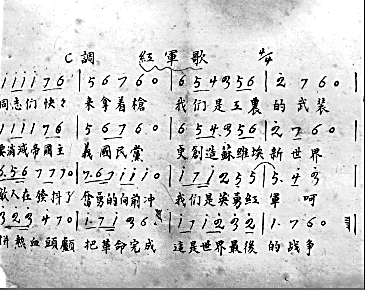 C調 紅軍歌 4/4
i i i 7 6 | 5 6 7 6 0 | 6 5 4 3 5 6 | 2. 7 6 0 |
同志们快々 来拿着槍 我们是工農的武裝
i i i i 7 6 | 5 6 7 6 0 | 6 5 4 3 5 6 | 2. 7 6 0
要消滅帝國主 義國民黨 更創造蘇維埃新世界
6. 5 6 7 7 7 0 | 7. 6 7 i i i 0 | i 7 i 2 5 5 | 5. 4 3
敌人在發抖了 奮勇的向前冲 我们是英勇紅軍呵
3 2 3 4 7 0 | i. 7 i 3 6. | i 7 i 2 3 2 | 1. 7 6 0
拼熱血頭顱 把革命完成 這是世界最後的战爭